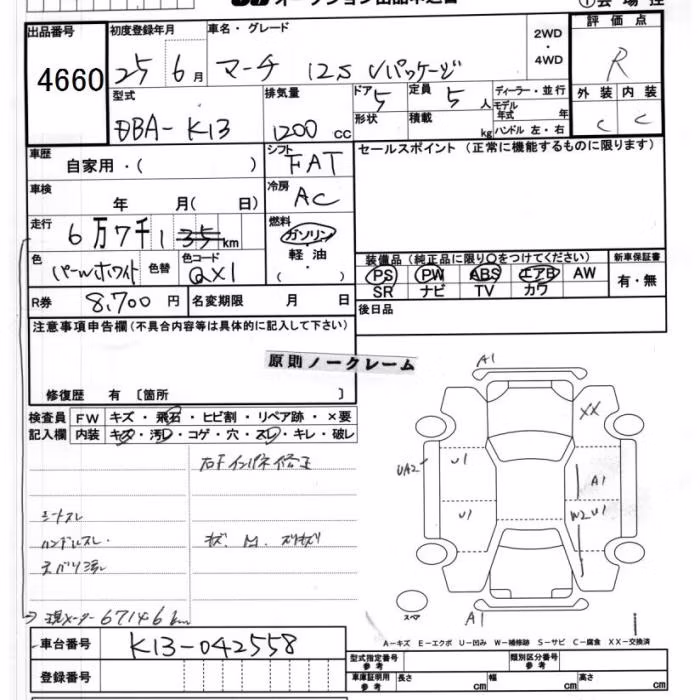 オークション出品申込書
①会場控
出品番号
4660
初度登録年月
25 6月
車名・グレード
マーチ 12S Vパッケージ
2WD
・
4WD
評価点
R
型式
DBA-K13
排気量
1200 cc
ドア 5
形状
定員 5 人
積載 kg
ディーラー・並行
モデル年式 年
ハンドル 左・右
外装 内装
C C
車歴
自家用・( )
シフト
FAT
セールスポイント (正常に機能するものに限ります)
車検
年 月( 日)
冷房
AC
走行
6万7千1 35km
燃料
ガソリン
軽油
( ・ )
色
パールホワイト
色替
色コード
QX1
装備品 (純正品に限り○をつけてください)
PS PW ABS エアB AW
SR ナビ TV カワ
新車保証書
有・無
R券 8,700 円
名変期限 月 日
後日品
注意事項申告欄 (不具合内容等は具体的に記入して下さい)
原則ノークレーム
修復歴 有 〔箇所 〕
検査員記入欄
FW キズ・飛石・ヒビ割・リペア跡・×要
内装 キズ・汚レ・コゲ・穴・スレ・キレ・破レ
右Fインパネ修正
シートスレ
ハンドルスレ.
キズ. M. ズリキズ
ネバツ済
→現メーター67146km
A1
XX
UA2
U1
A1
U1
W2 U1
A1
スペア
A-キズ E-エクボ U-凹み W-補修跡 S-サビ C-腐食 XX-交換済
車台番号
K13-042558
登録番号
型式指定番号
参考
類別区分番号
参考
車庫証明用
参考
長さ cm
幅 cm
高さ cm